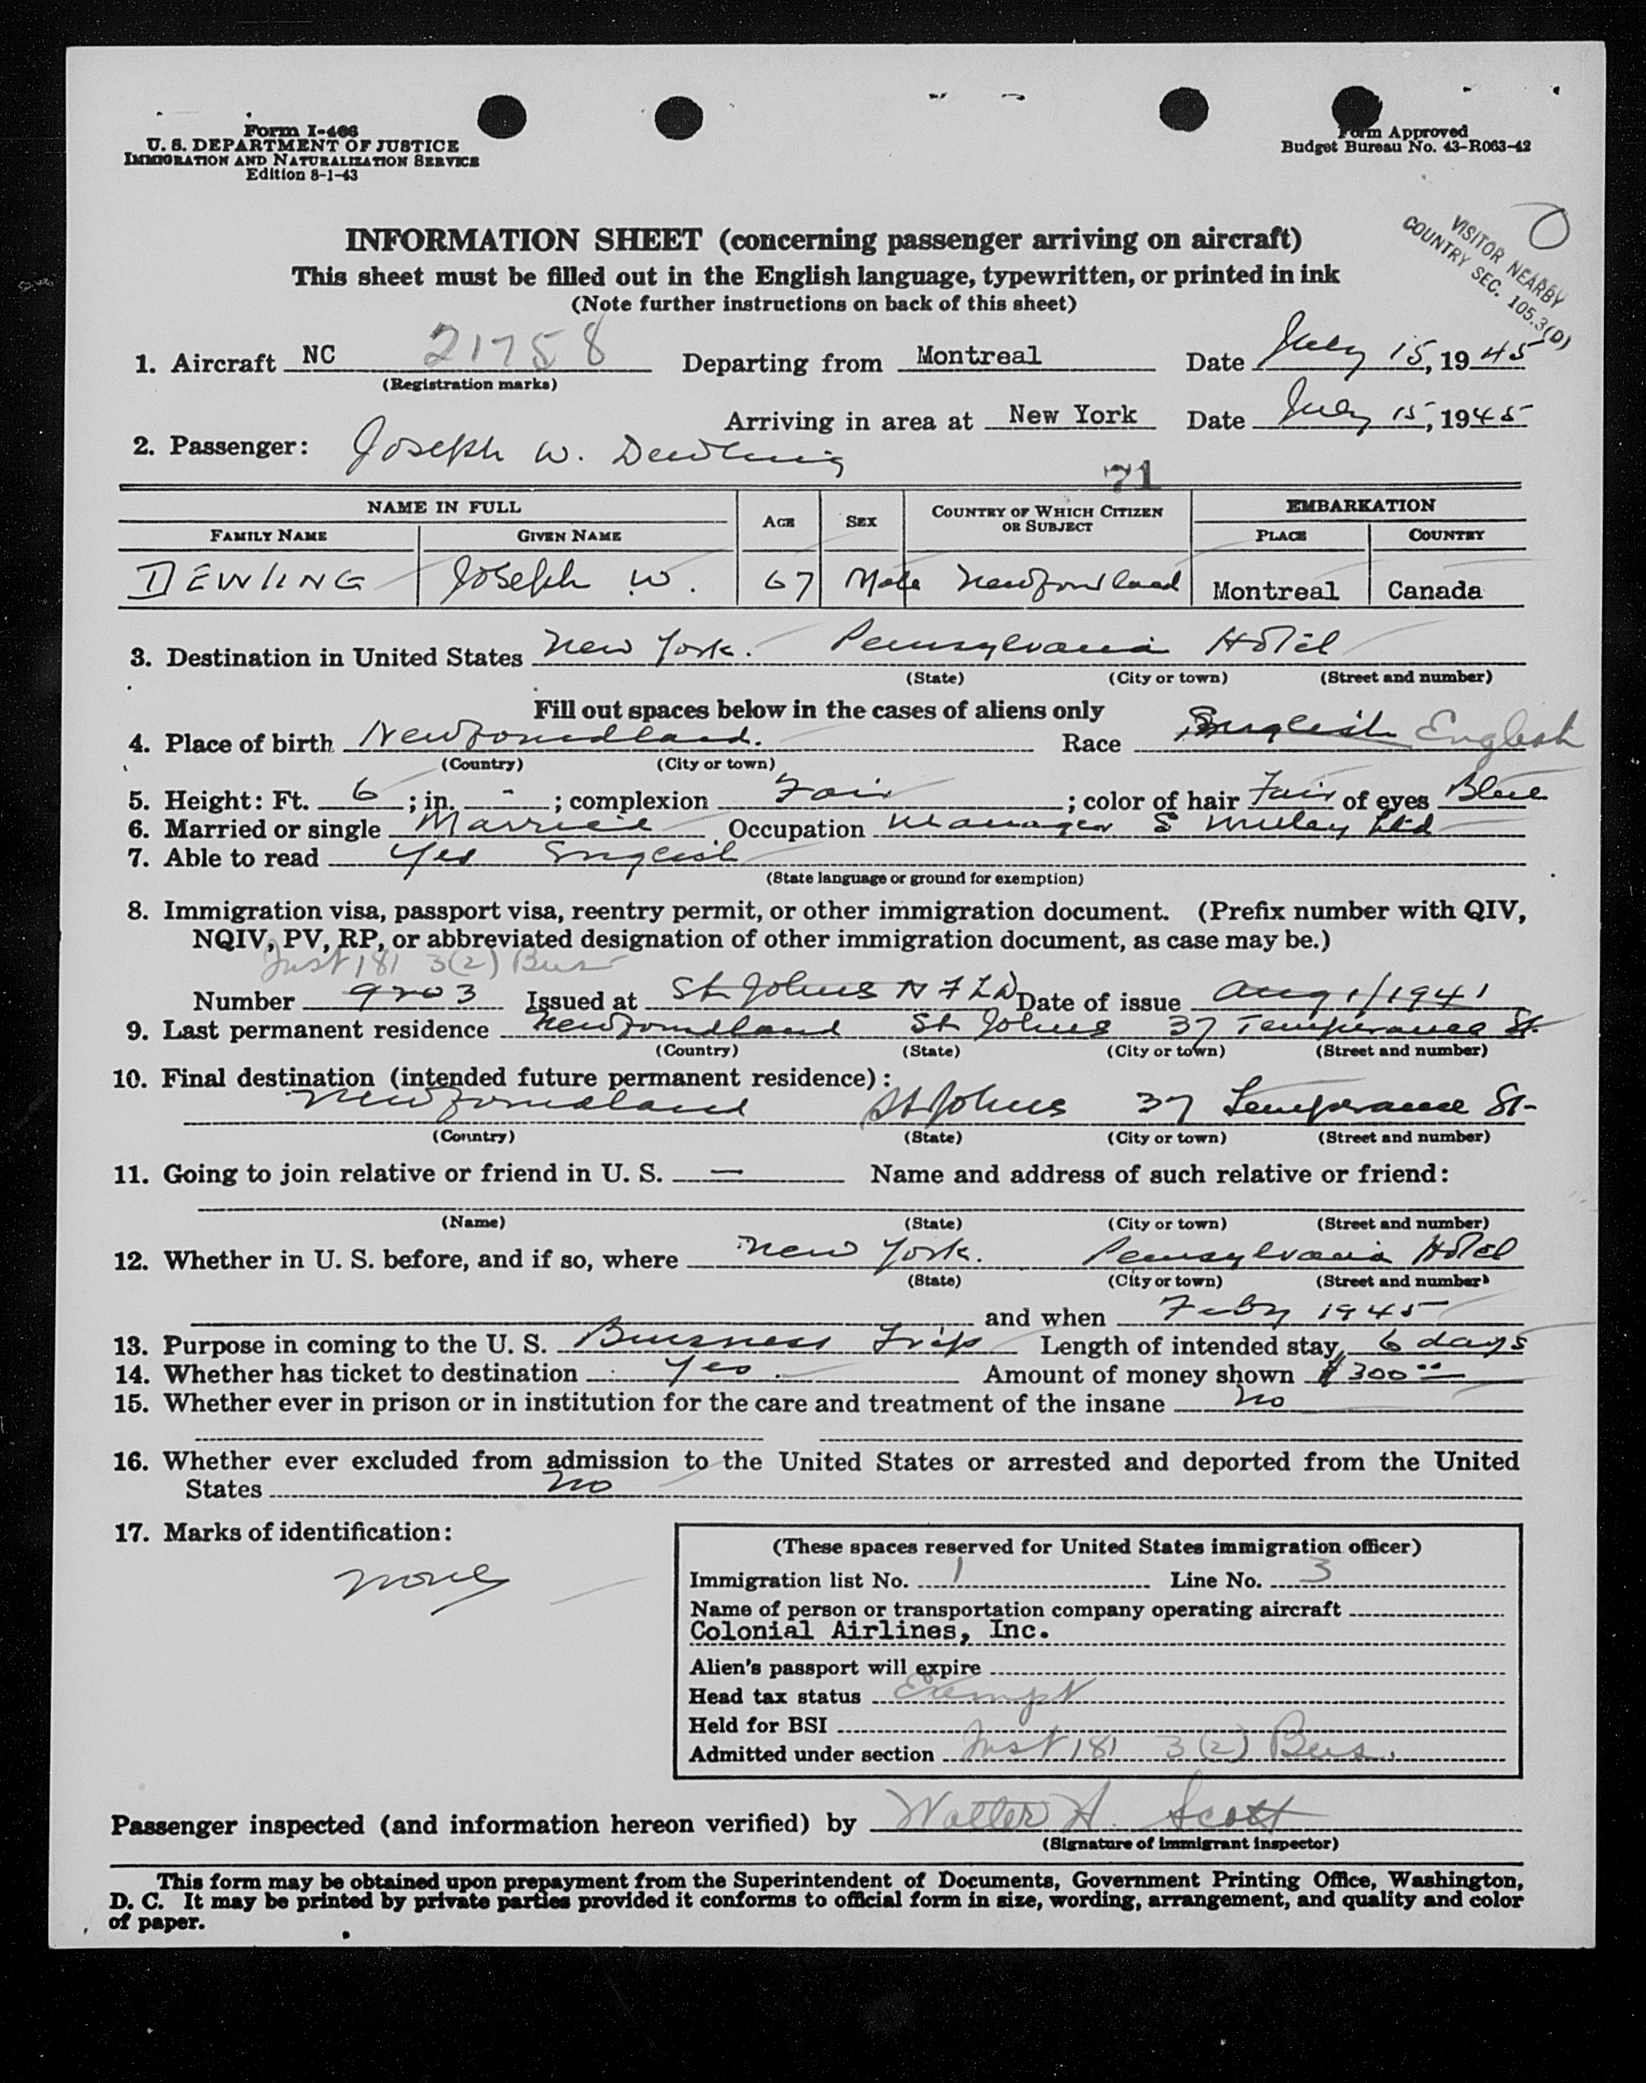 Form I-466
U. S. DEPARTMENT OF JUSTICE
IMMIGRATION AND NATURALIZATION SERVICE
Edition 8-1-43
Form Approved
Budget Bureau No. 43-R063-42
VISITOR NEARBY
COUNTRY SEC. 105.3(D)
INFORMATION SHEET (concerning passenger arriving on aircraft)
This sheet must be filled out in the English language, typewritten, or printed in ink
(Note further instructions on back of this sheet)
1. Aircraft NC 21758 Departing from Montreal Date July 15, 1945
(Registration marks)
Arriving in area at New York Date July 15, 1945
2. Passenger: Joseph W. Dewling
71
NAME IN FULL AGE SEX COUNTRY OF WHICH CITIZEN OR SUBJECT EMBARKATION
FAMILY NAME GIVEN NAME PLACE COUNTRY
DEWLING Joseph W. 67 Male Newfoundland Montreal Canada
3. Destination in United States New York. Pennsylvania Hotel
(State) (City or town) (Street and number)
Fill out spaces below in the cases of aliens only
4. Place of birth Newfoundland. Race English English
(Country) (City or town)
5. Height: Ft. 6 ; in. - ; complexion Fair ; color of hair Fair of eyes Blue
6. Married or single Married Occupation Manager S Ltd
7. Able to read Yes English
(State language or ground for exemption)
8. Immigration visa, passport visa, reentry permit, or other immigration document. (Prefix number with QIV,
NQIV, PV, RP, or abbreviated designation of other immigration document, as case may be.)
Inst 181 3(2) Bus
Number 9203 Issued at St Johns NFLD Date of issue Aug 1/1941
9. Last permanent residence Newfoundland St Johns 37 Temperance St.
(Country) (State) (City or town) (Street and number)
10. Final destination (intended future permanent residence):
Newfoundland St Johns 37 Temperance St-
(Country) (State) (City or town) (Street and number)
11. Going to join relative or friend in U. S. — Name and address of such relative or friend:
(Name) (State) (City or town) (Street and number)
12. Whether in U. S. before, and if so, where New York. Pennsylvania Hotel
(State) (City or town) (Street and number)
and when Feby 1945
13. Purpose in coming to the U. S. Business Trip Length of intended stay 6 days
14. Whether has ticket to destination Yes. Amount of money shown $300
15. Whether ever in prison or in institution for the care and treatment of the insane No
16. Whether ever excluded from admission to the United States or arrested and deported from the United
States No
17. Marks of identification:
none
(These spaces reserved for United States immigration officer)
Immigration list No. 1 Line No. 3
Name of person or transportation company operating aircraft
Colonial Airlines, Inc.
Alien's passport will expire
Head tax status Exempt
Held for BSI
Admitted under section Inst 181 3(2) Bus.
Passenger inspected (and information hereon verified) by Walter A. Scott
(Signature of immigrant inspector)
This form may be obtained upon prepayment from the Superintendent of Documents, Government Printing Office, Washington,
D. C. It may be printed by private parties provided it conforms to official form in size, wording, arrangement, and quality and color
of paper.